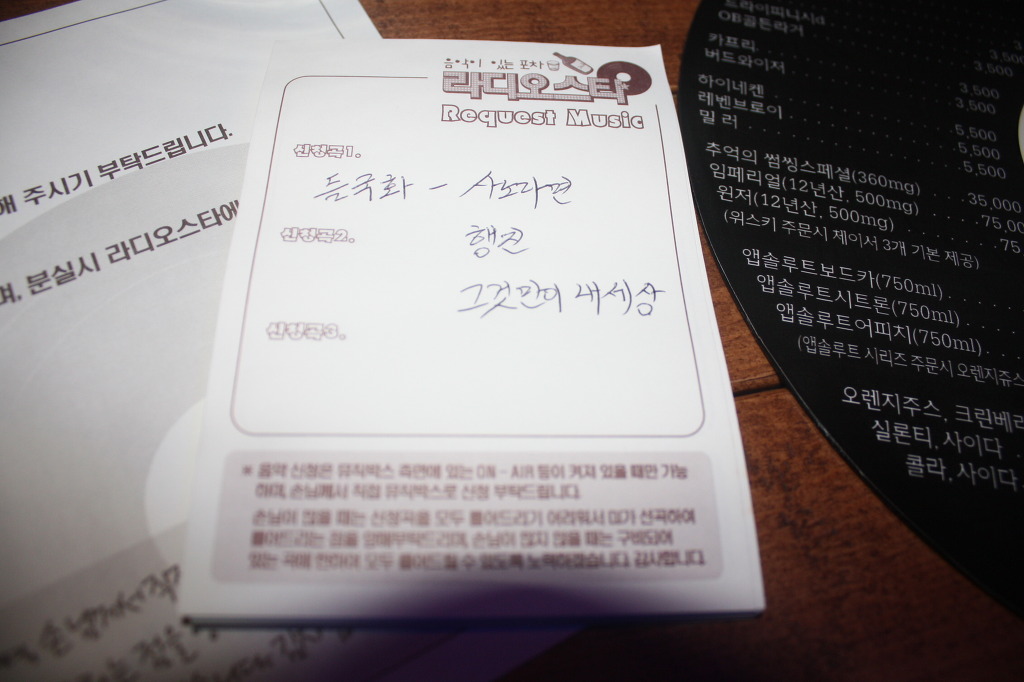 해 주시기 부탁드립니다.
며, 분실시 라디오스타에
음악이 있는 포차
라디오스타
Request Music
신청곡1.
들국화 - 사노라면
신청곡2.
행진
그것만이 내세상
신청곡3.
※ 음악 신청은 뮤직박스 측면에 있는 ON - AIR 등이 켜져 있을때만 가능
하며, 손님께서 직접 뮤직박스로 신청 부탁드립니다.
손님이 많을 때는 신청곡을 모두 틀어드리기 어려워서 DJ가 선곡하여
틀어드리는 점을 양해부탁드리며, 손님이 많지 않을 때는 구비되어
있는 곡에 한하여 모두 틀어드릴 수 있도록 노력하겠습니다. 감사합니다.
드라이피니시d
OB골든라거
카프리 3,500
버드와이저 3,500
하이네켄 3,500
레벤브로이 3,500
밀 러 5,500
5,500
5,500
추억의 썸씽스페셜(360mg) 35,000
임페리얼(12년산, 500mg) 75,00
윈저(12년산, 500mg) 75
(위스키 주문시 제이서 3개 기본 제공)
앱솔루트보드카(750ml)
앱솔루트시트론(750ml)
앱솔루트어피치(750ml)
(앱솔루트 시리즈 주문시 오렌지쥬스
오렌지주스, 크린베리
실론티, 사이다
콜라, 사이다